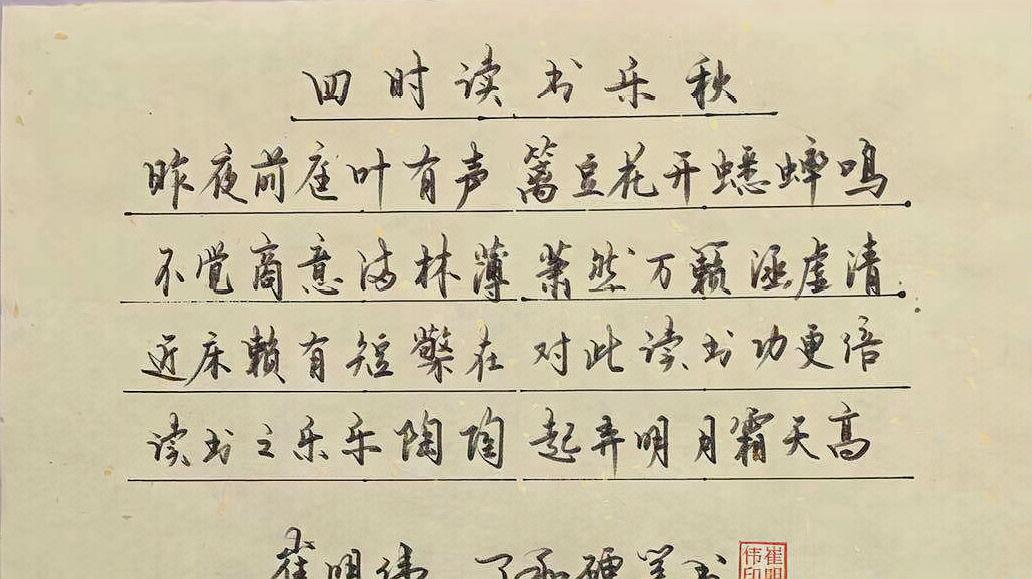 四时读书乐秋
昨夜前庭叶有声 篱豆花开蟋蟀鸣
不觉商意满林薄 萧然万籁涵虚清
近床赖有短檠在 对此读书功更倍
读书之乐乐陶陶 起弄明月霜天高
崔明伟 硬笔书
崔明
伟印